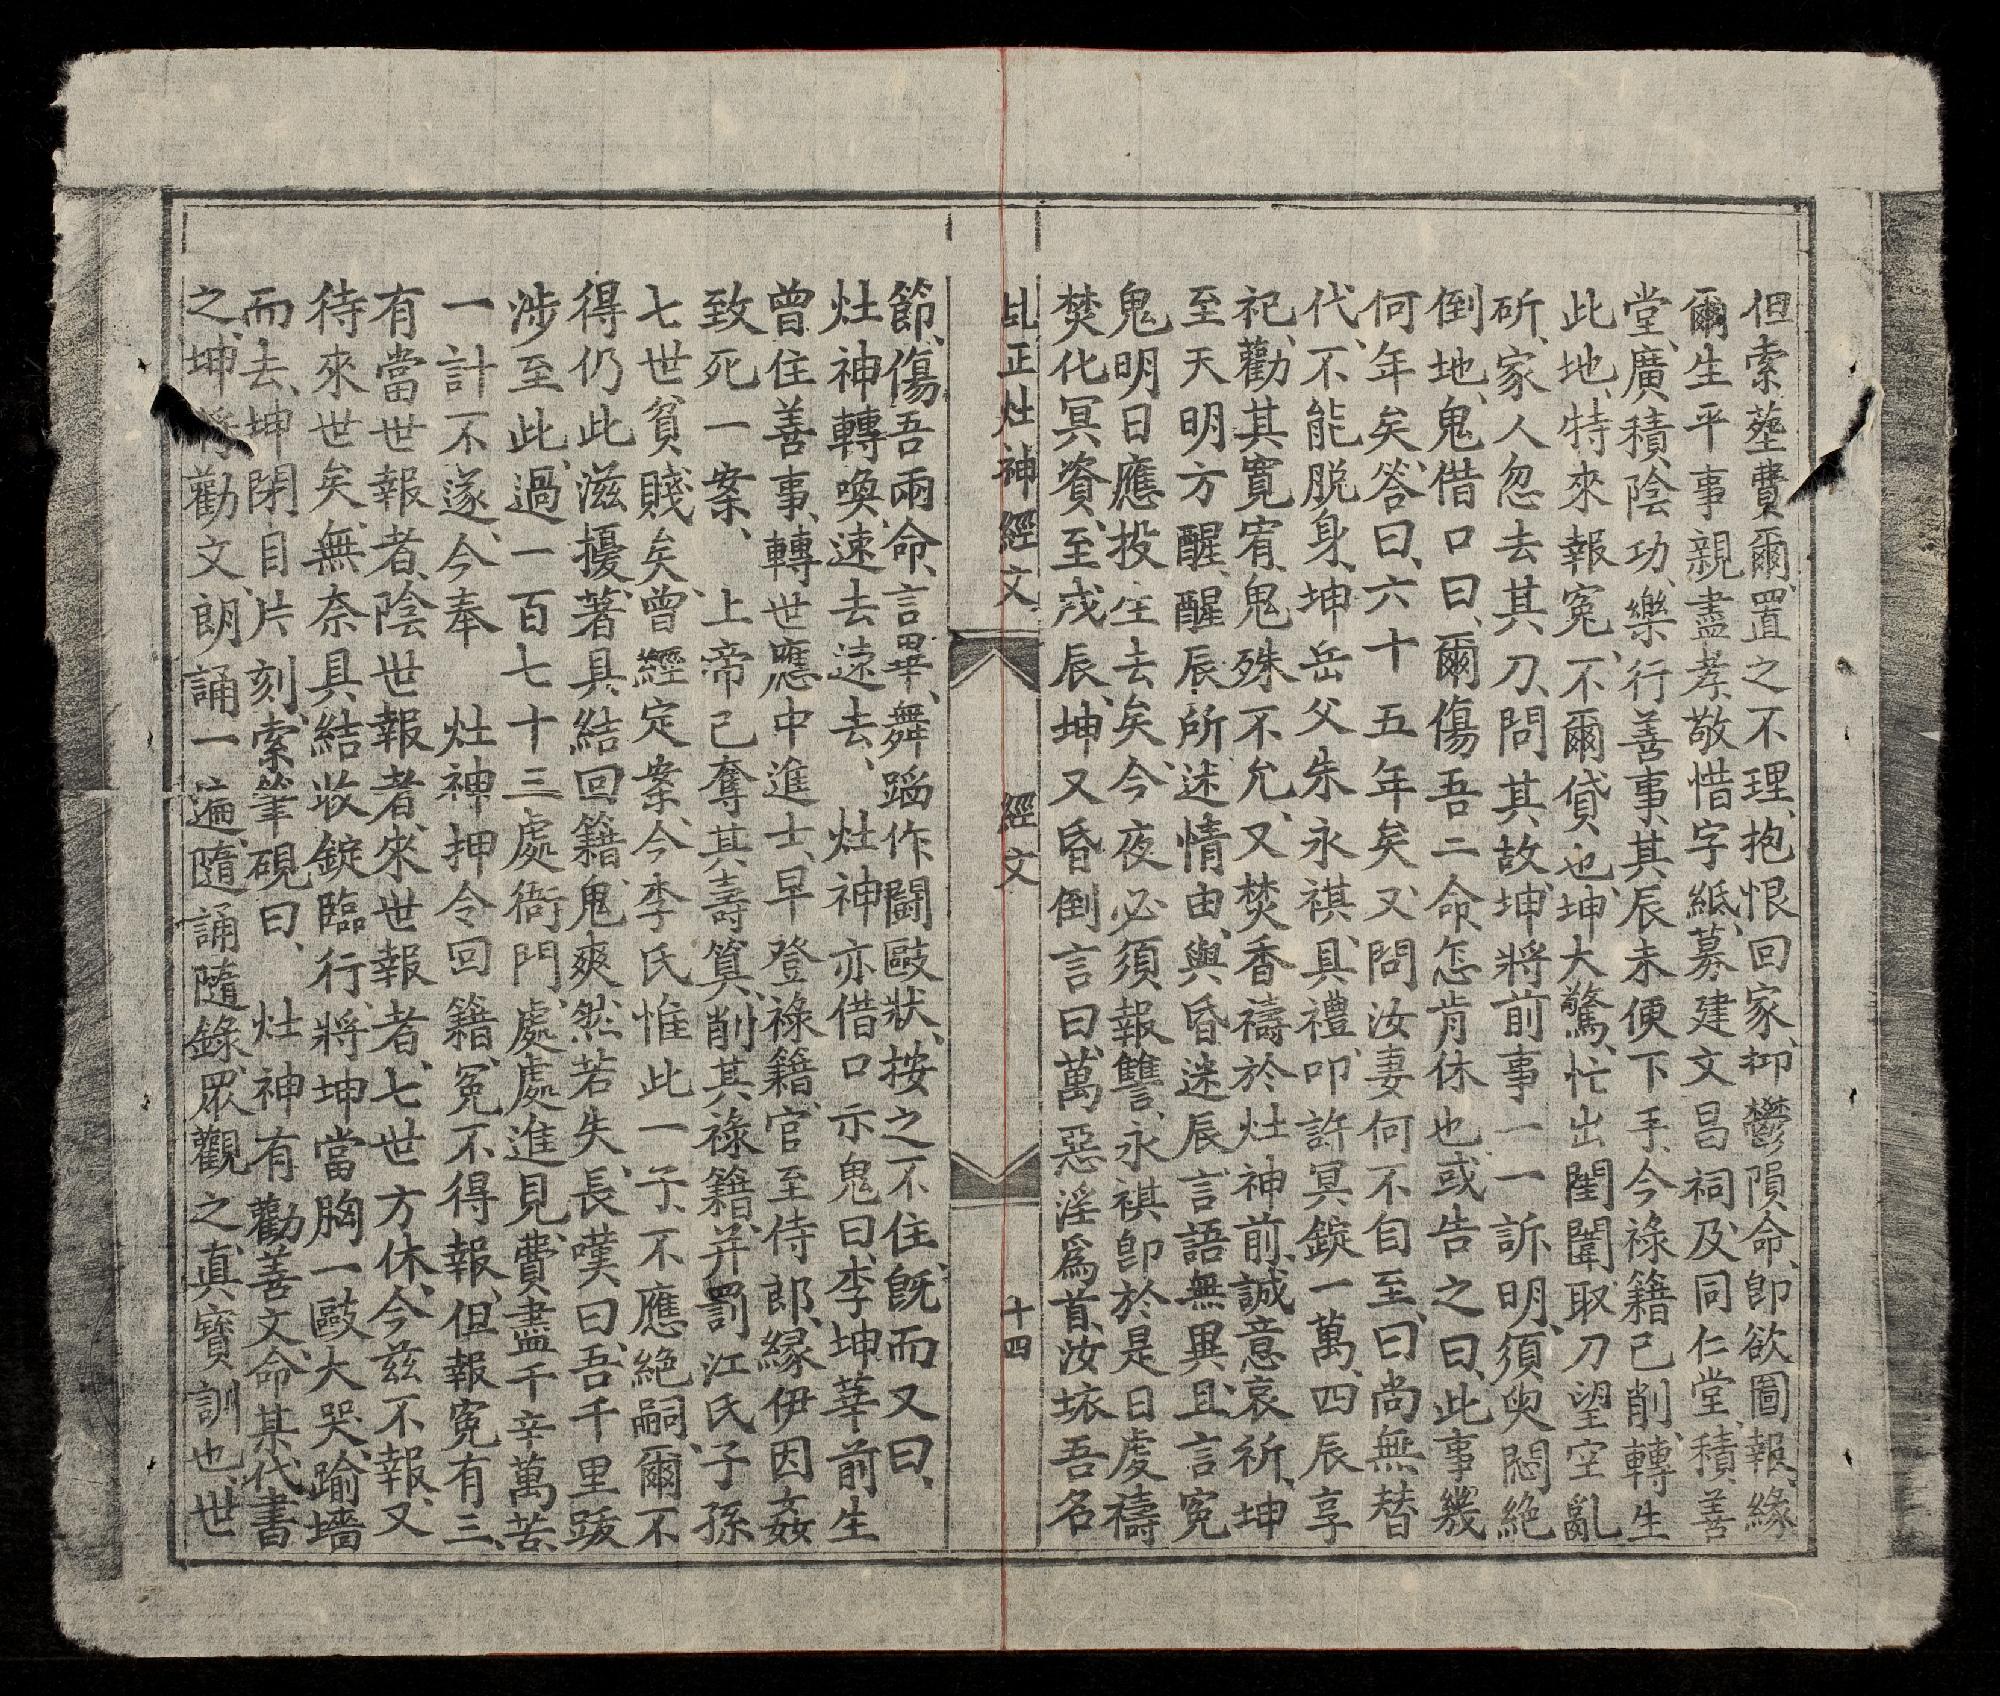 但索塟費爾置之不理、抱恨回家、抑鬱隕命、卽欲圖報、緣
爾生平事親盡孝、敬惜字紙、募建文昌祠、及同仁堂、積善
堂、廣積陰功、樂行善事、其辰未便下手、今祿籍已削、轉生
此地、特來報寃、不爾貸也、坤大驚、忙出閨闥、取刀望空亂
斫、家人忽去其刀、問其故、坤將前事一一訴明、須臾悶絶
倒地、鬼借口曰、爾傷吾二命、怎肯休也、或告之曰、此事幾
何年矣、答曰、六十五年矣、又問汝妻何不自至、曰尚無替
代、不能脫身、坤岳父朱永祺、具禮叩許冥錠一萬、四辰享
祀、勸其寬宥、鬼殊不允、又焚香禱於灶神前、誠意哀祈、坤
至天明方醒、醒辰所迷情由、與昏迷辰、言語無異、且言寃
鬼明日應投生去矣、今夜必須報讐、永祺卽於是日虔禱
焚化冥資、至戌辰、坤又昏倒言曰、萬惡淫爲首、汝㧊吾名
乩正灶神經文 經文 十四
節、傷吾兩命、言畢、舞蹈作鬪毆狀、按之不住、旣而又曰、
灶神轉喚速去遠去、 灶神亦借口示鬼曰、李坤莘前生
曾住善事、轉世應中進士、早登祿籍、官至侍郎、緣伊因姦
致死一案、 上帝已奪其壽算、削其祿籍、并罰江氏子孫
七世貧賤矣、曾經定案、今李氏惟此一子、不應絶嗣、爾不
得仍此滋擾、著具結回籍、鬼爽然若失、長嘆曰、吾千里跋
涉至此、過一百七十三處衙門、處處進見、費盡千辛萬苦、
一計不遂、今奉 灶神押令回籍、寃不得報、但報寃有三、
有當世報者、陰世報者、來世報者、七世方休、今兹不報、又
待來世矣、無奈具結收錠臨行、將坤當胸一毆、大哭、踰墻
而去、坤閉目片刻、索筆硯曰、 灶神有勸善文、命某代書
之、坤將勸文、朗誦一遍、隨誦隨錄、眾觀之、真寳訓也、世